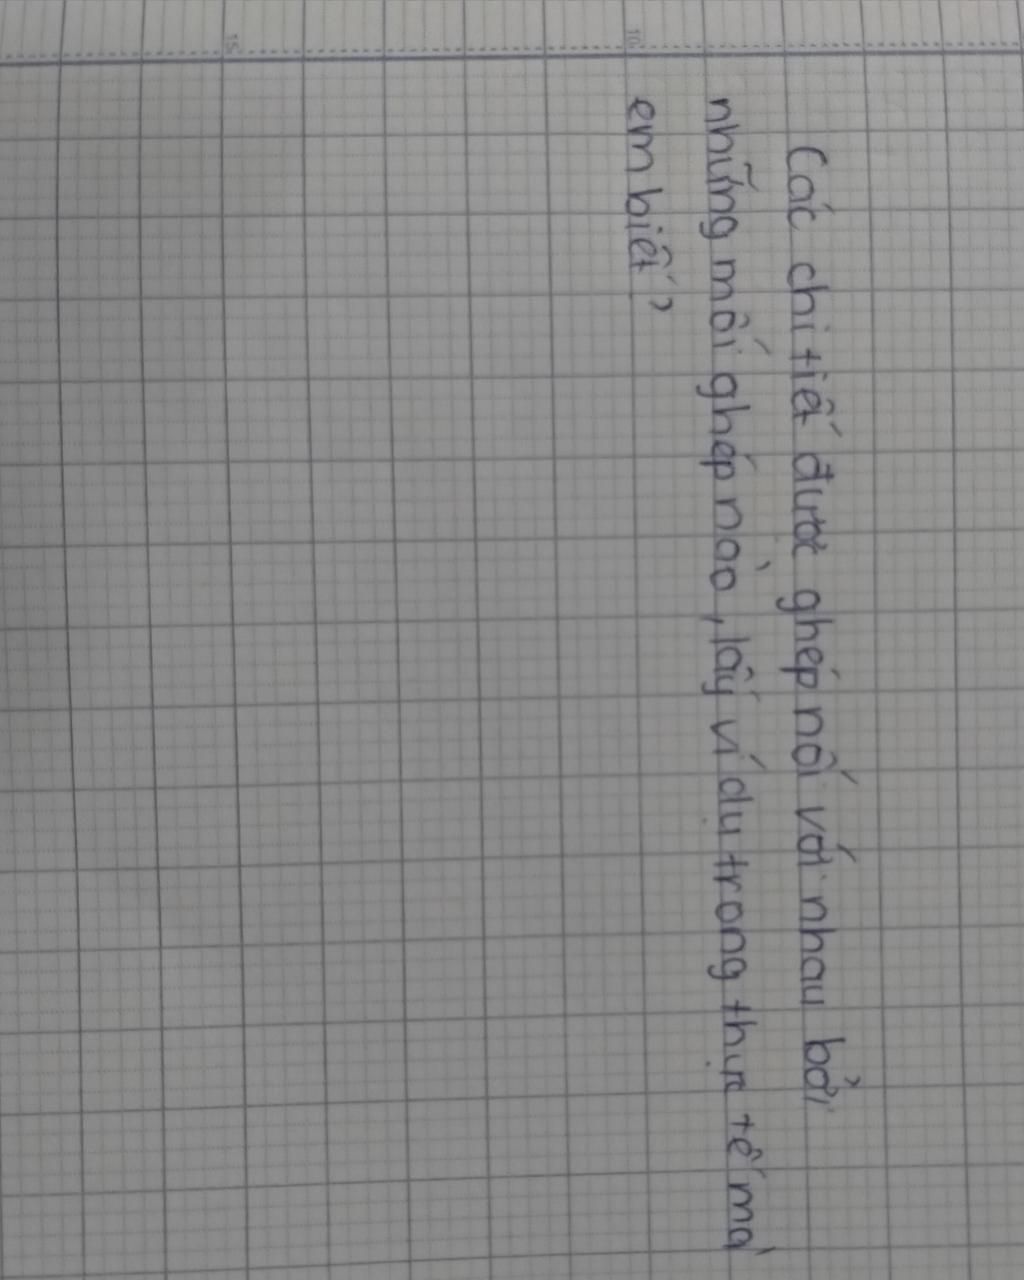 Các chi tiết được ghép nối với nhau bởi
những mối ghép nào, lấy ví dụ trong thực tế mà
em biết?